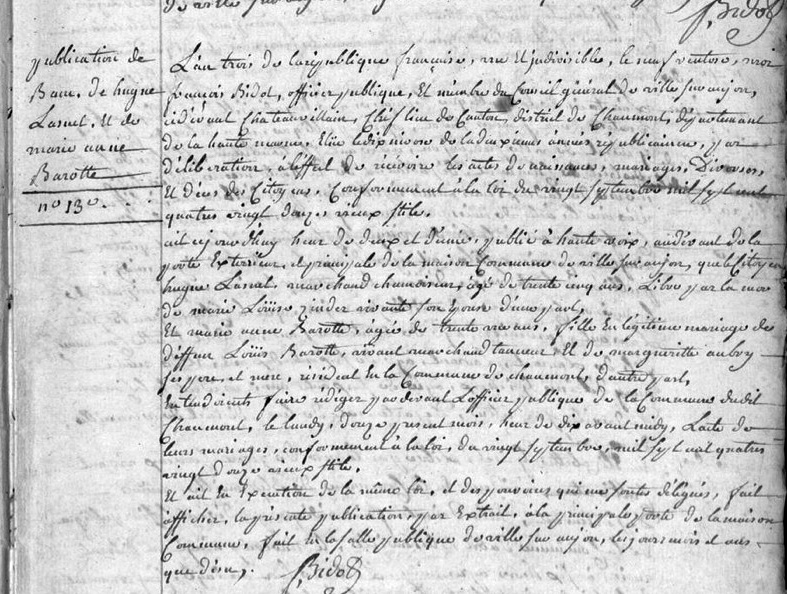 de ville sur
Bidot
publication de
Banc. de hugue
Lasnet. Et de
marie anne
Barotte
n° 13e.
L'an trois de la republique française, une Et jndivisible, le neuf ventose, moi
françois Bidot, officier publique, Et membre du Conseil général de ville sur aujon,
cidévant Chateauvillain, Chef lieu de Canton, district de Chaumont, département
de la haute marne, Elüe le dix nivose de la deuxiemes années républicainne, pour
déliberation, à l'éffet de récévoire les actes de naissances, mariages, Divorces,
Et décés des Citoyens, Conformement à la loi du vingt septembre mil sept cent
quatres vingt douze vieux stile.
ait cejourdhuy heur de deux et démie, publié à haute voix, audévant de la
porte Exterieur, et principale de la maison Commune de ville sur aujon, que le Citoyen
hugue Lasnet, marchand chamoiseur, agé de trente cinq ans, Libre par la mor
de marie Loüise jinder vivante son épouse d'une part,
Et marie anne Barotte, agée de trente un ans, fille En légitime mariage de
déffun Loüis Barotte, vivant marchand tanneur Et de margueritte aubry
ses pere, et mere, résident En la Commune de chaumont, d'autre part,
Entendoients faire rédiger pardevant L'officier publique de la Commune dudit
Chaumont, le lundy, douze présent mois, heur de dix avant midy, L'acte de
leurs mariages, conformement à la loi, du vingt septembre, mil sept cent quatres
vingt douze vieux stile.
Et ait En Execution de la même loi, et des pouvoirs qui me sontes délégués, fait
afficher, la présente publication, par Extrait, à la principale porte de la maison
Commune, fait En la salle publique de ville sur aujon, les jours mois et ans
que d'ssu,
Bidot